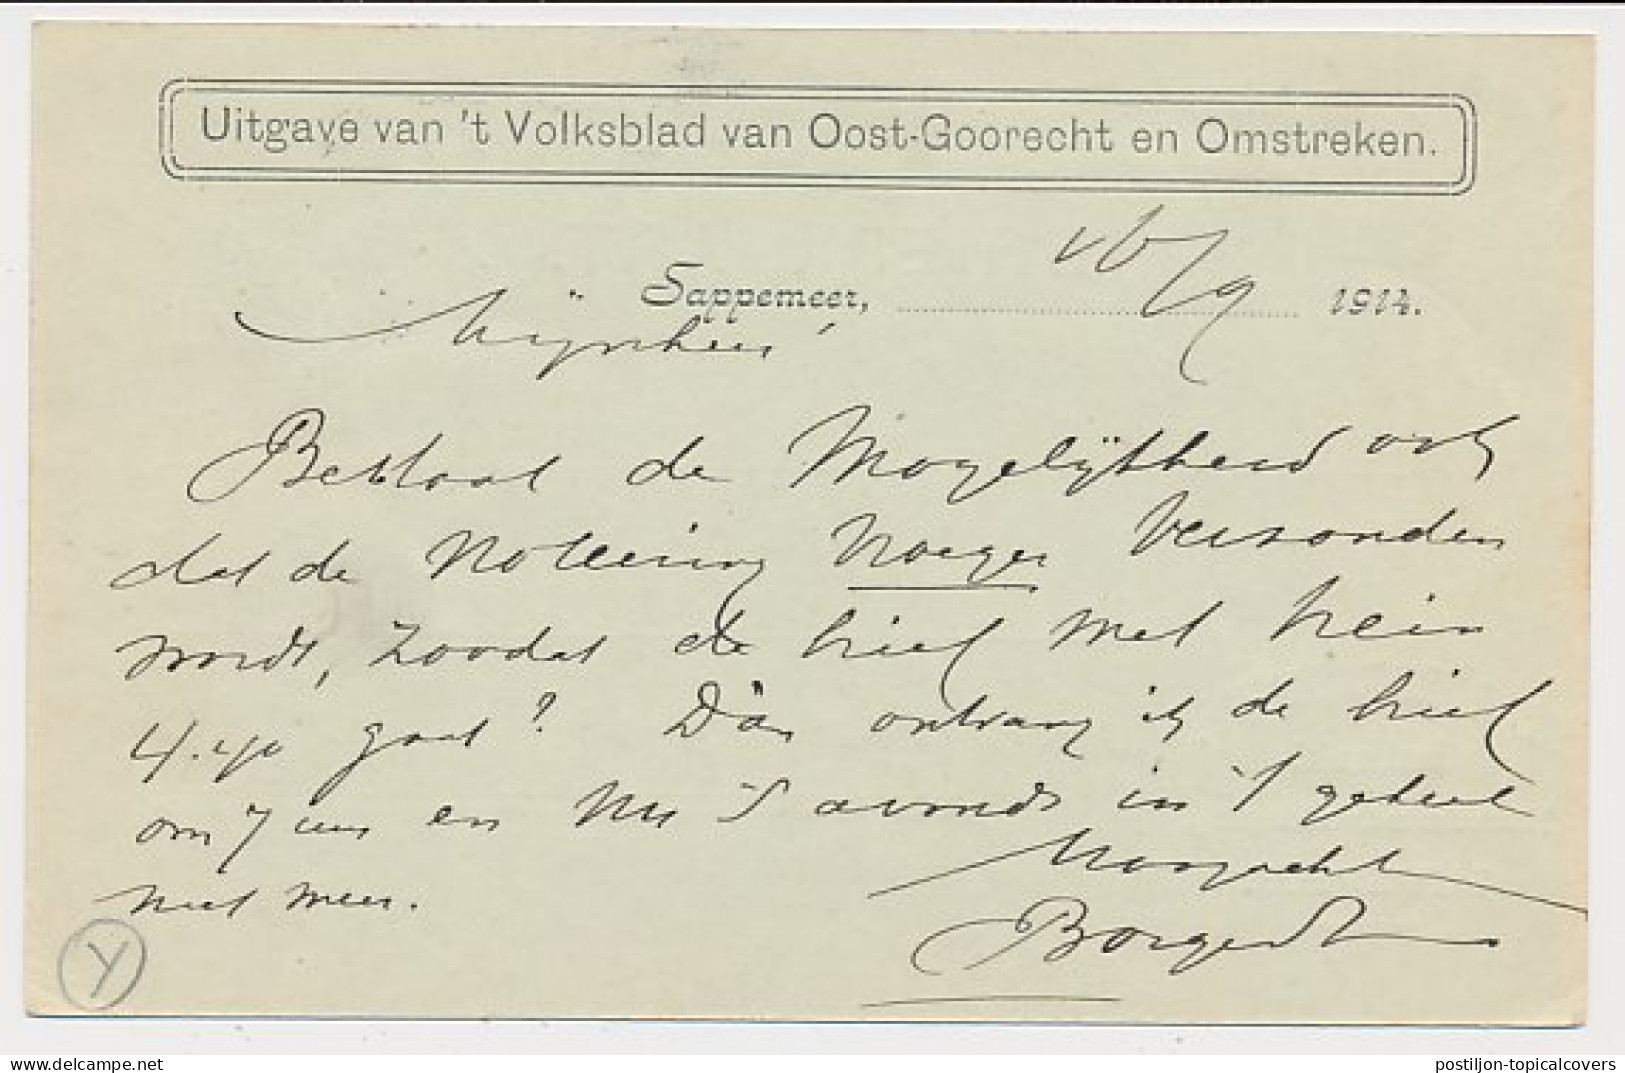 Uitgave van 't Volksblad van Oost-Goorecht en Omstreken.
Sappemeer, 16/9 1914.
Mijnheer
Bestaat de Mogelijkheid ook
dat de Noteering vroeger Verzonden
wordt, zoodat de brief met trein
4.40 gaat? Dan ontvang ik de brief
om 7 uur en nu 's avonds in 't geheel
niet meer.
Hoogacht
Borgerdt
Y
delcampe.net
postiljon-topicalcovers